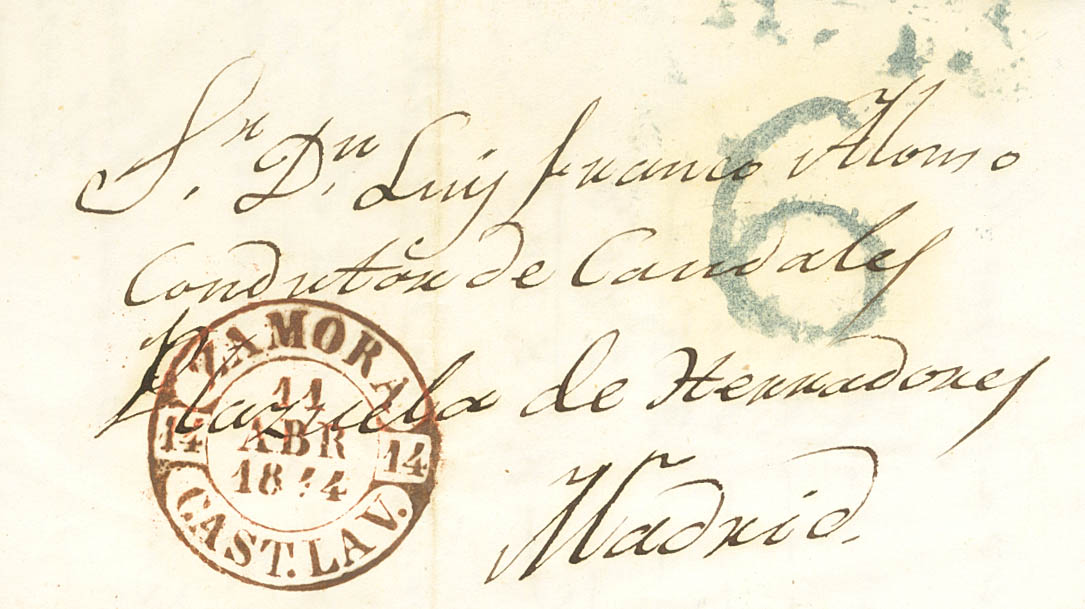 Sr. Dn. Luis Franco Alonso
Condutor de Caudales
Plazuela de Herradores
Madrid.
6
ZAMORA
14 14
11
ABR
1844
CAST. LA V.